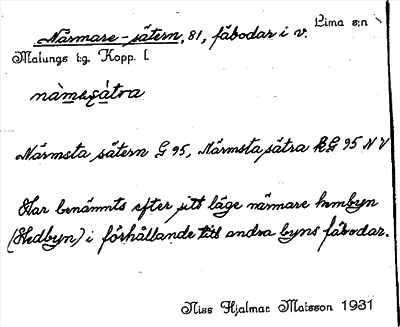 Närmare-sätern, 81, fäbodar i v. Lima s:n
Malungs t:g. Kopp. l.
nàmesátra
Närmsta sätern G 95, Närmsta sätra RG 95 NV
Har benämnts efter sitt läge närmare hembyn
(Hedbyn) i förhållande till andra byns fäbodar.
Niss Hjalmar Matsson 1931